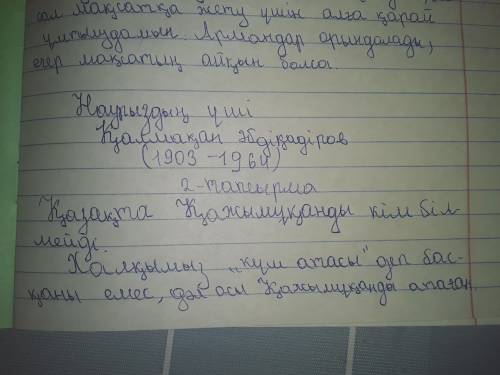 сол мақсатқа жету үшін алға қарай
ұмтылудамын. Армандар орындалады,
егер мақсатың айқын болса.
Наурыздың үші
Қалмақан Әбдіқадіров
(1903-1964)
2-тапсырма
Қазақта Қажымұқанды кім біл-
мейді.
Халқымыз "күш атасы" деп бас-
қаны емес, дәл осы Қажымұқанды атаған.